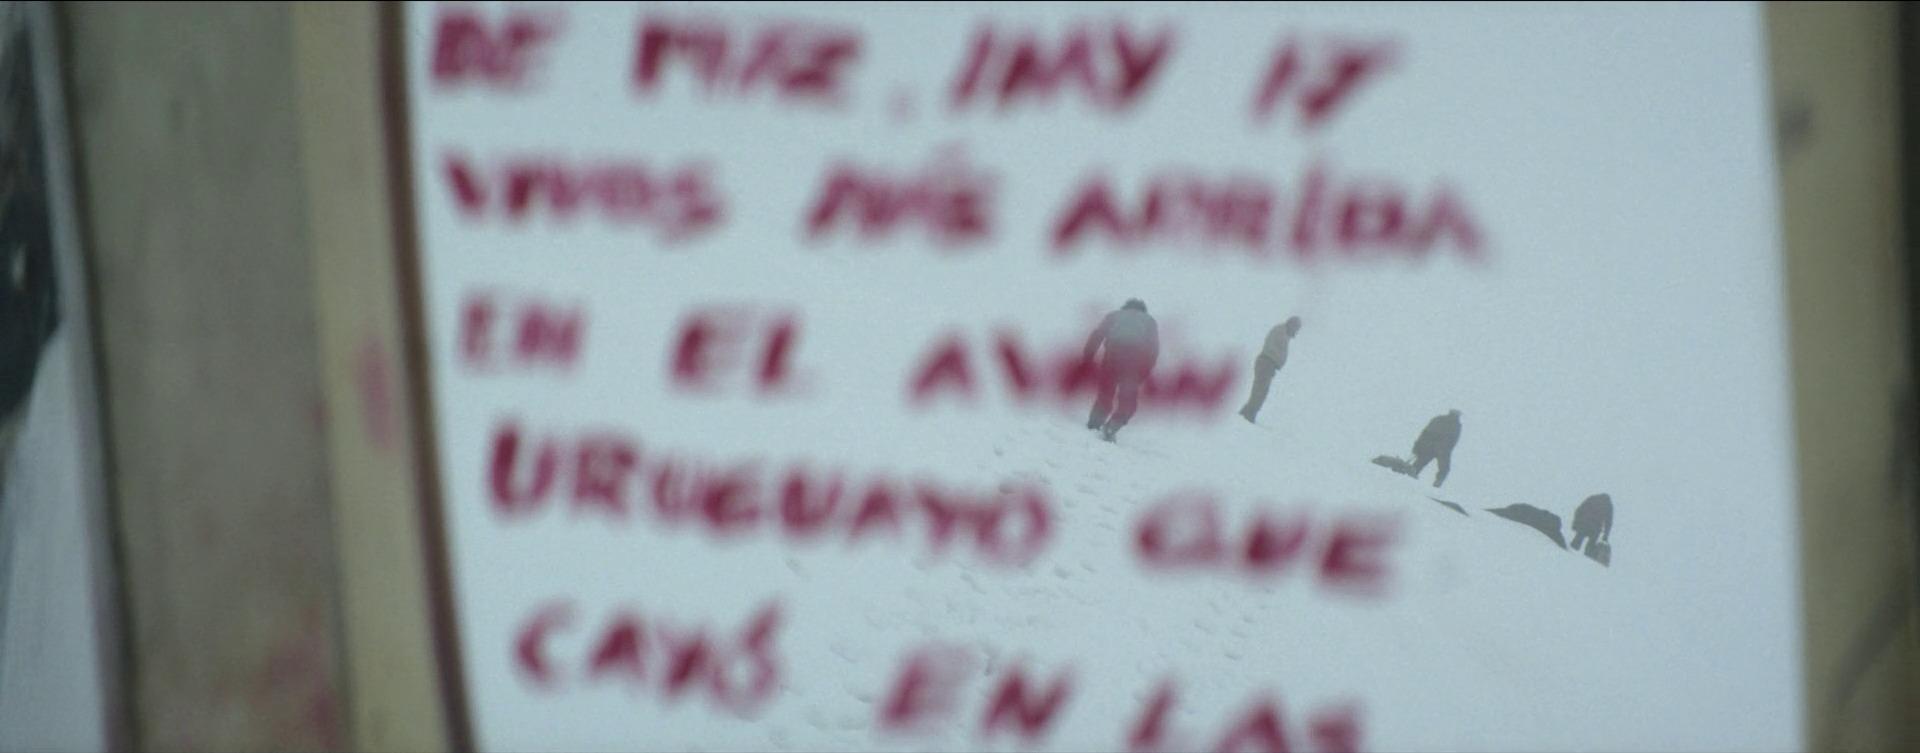 DE HAY 17
VIVOS MÁS ARRIBA
EN EL AVIÓN
URUGUAYO QUE
CAYÓ EN LAS